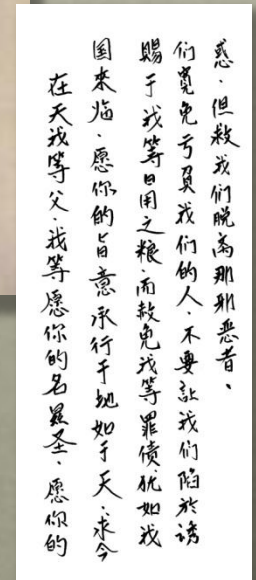 在天我等父.我等愿你的名显圣.愿你的
国來临.愿你的旨意承行于地如于天.求今
赐于我等日用之粮.而赦免我等罪债犹如我
们宽免亏負我们的人.不要让我们陷於诱
惑.但救我们脱离那邪恶者、